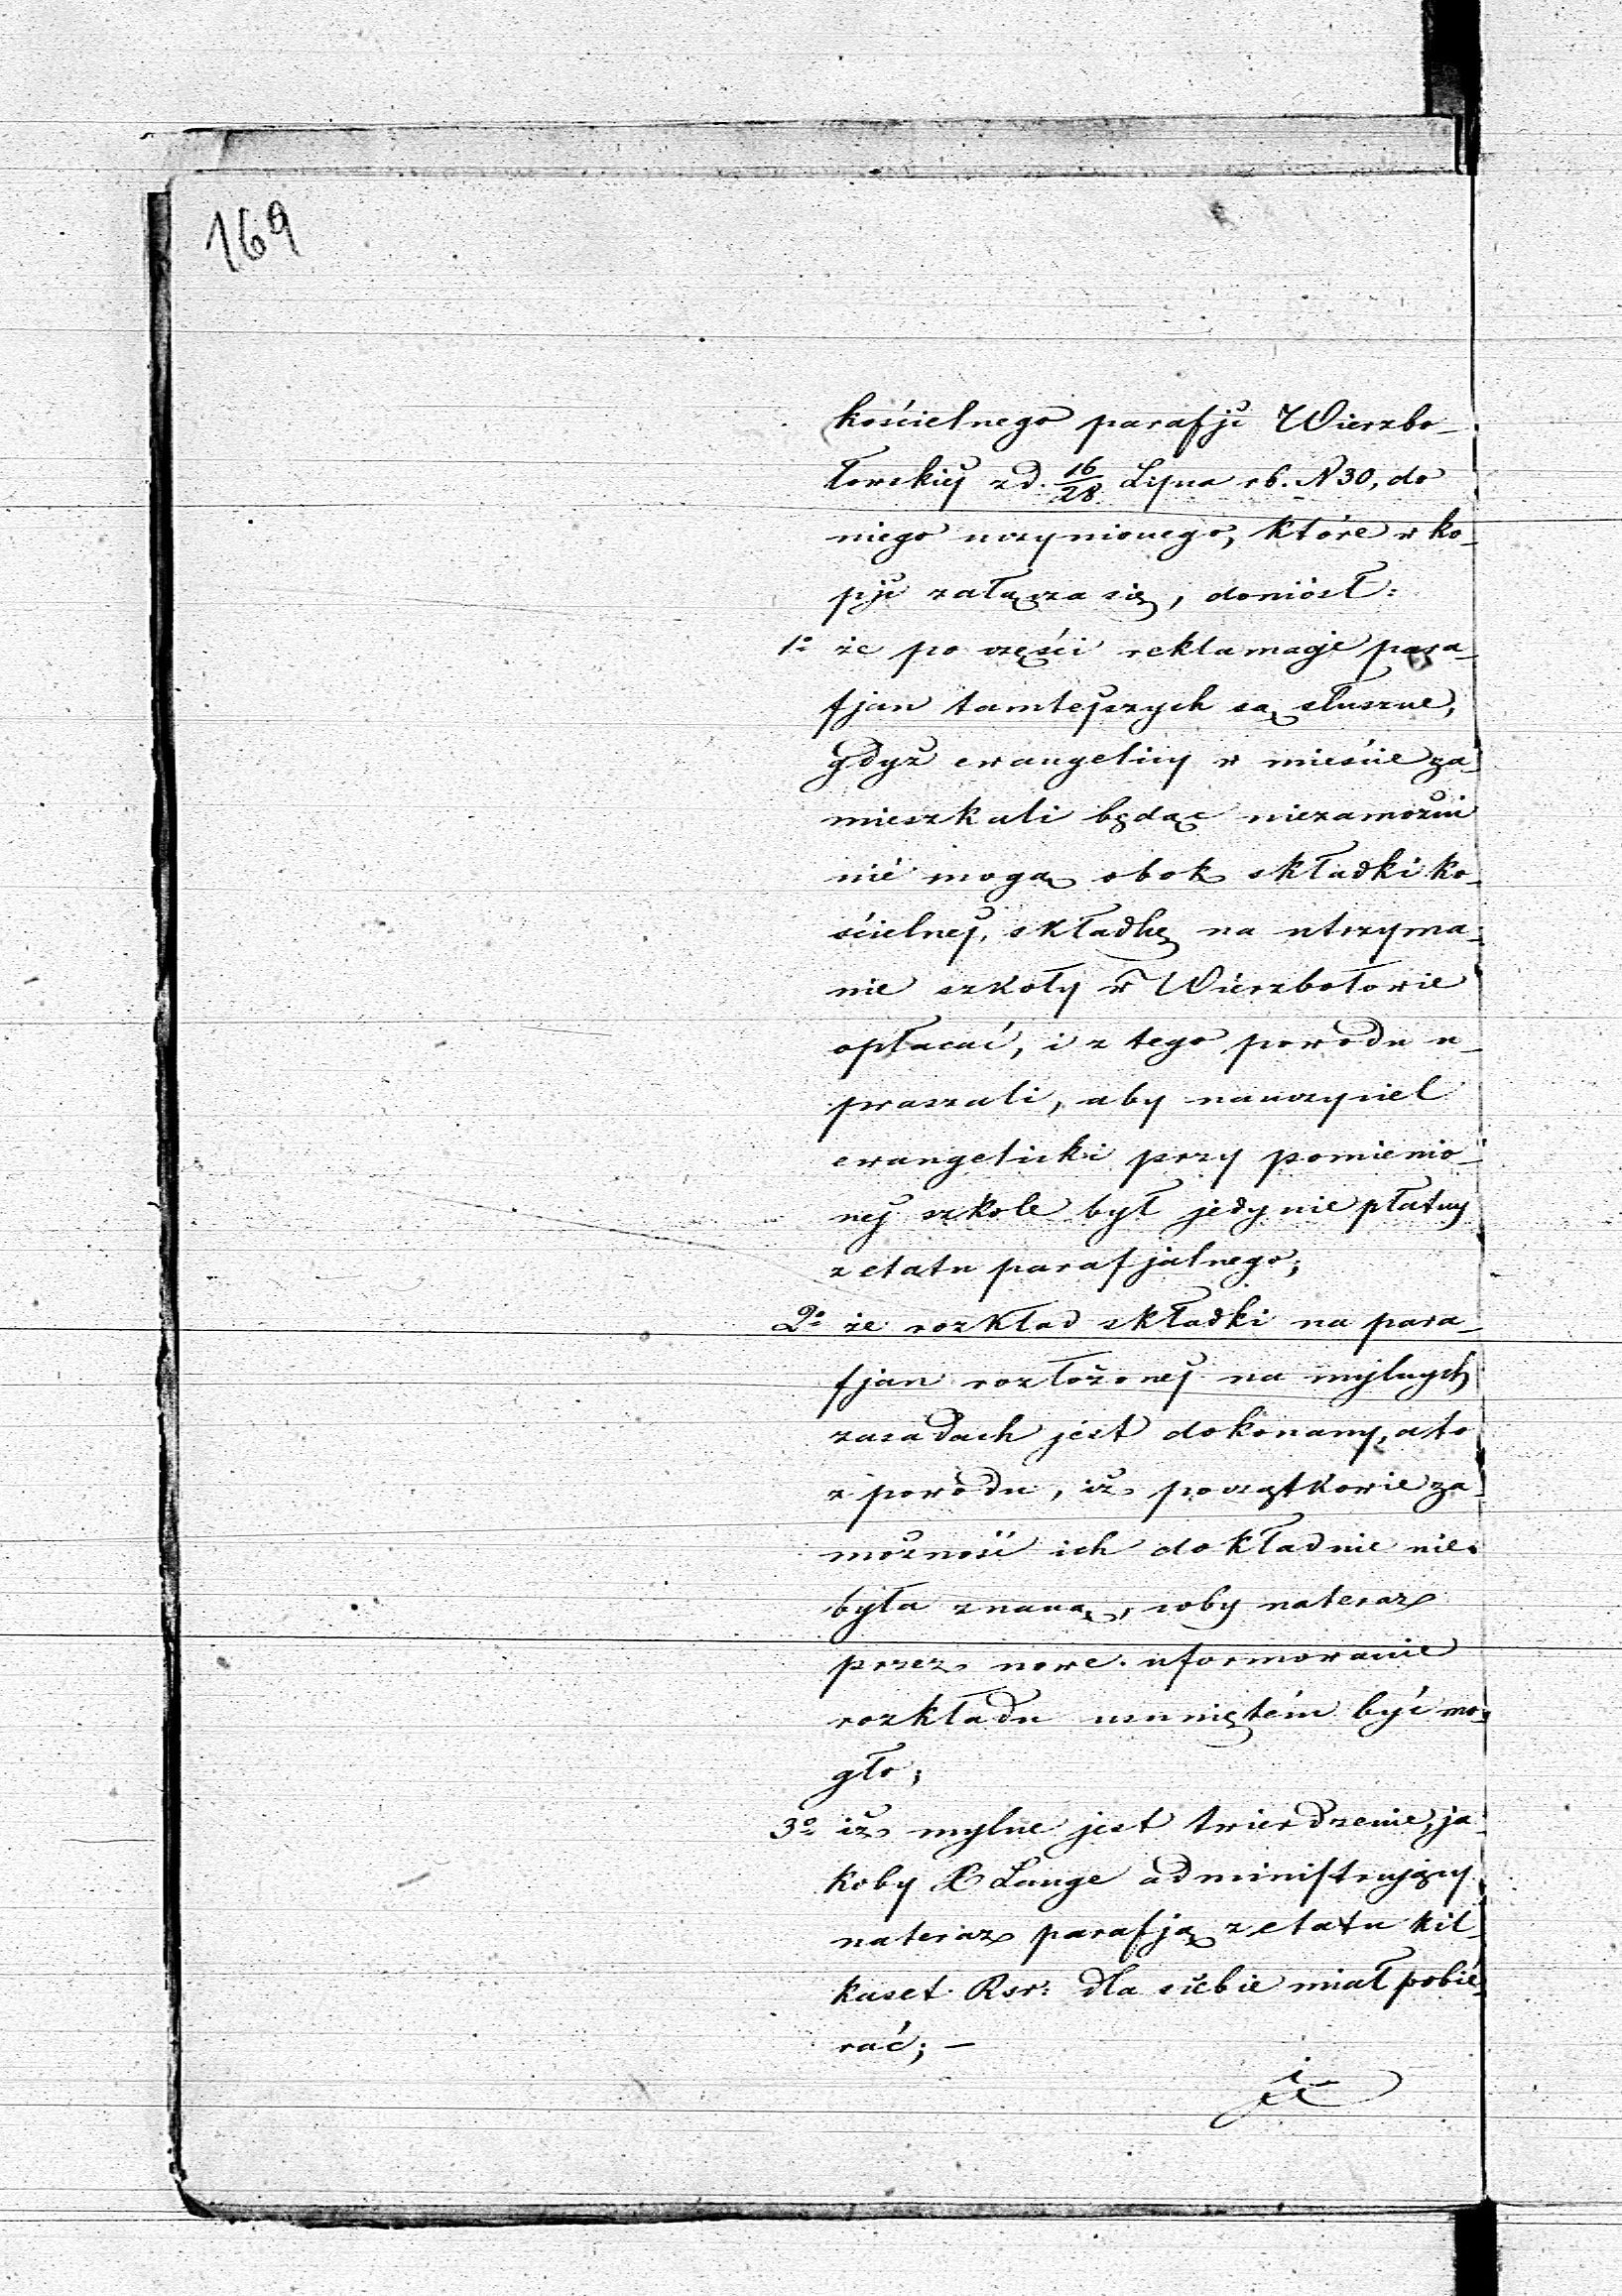 169
kościelnego parafji Wierzbo-
łowskiej z d. 16/28 Lipca rb. N 30, do
niego uczynionego, które w ko-
pji załącza się, doniósł:
1o że po części reklamacje para-
fjan tamtejszych są słuszne,
gdyż ewangelicy w mieście za-
mieszkali będąc niezamożni
nie mogą obok składki ko-
ścielnej, składkę na utrzyma-
nie szkoły w Wierzbołowie
opłacać, i z tego powodu u-
praszali, aby nauczyciel
ewangelicki przy pomienio-
nej szkole był jedynie płatny
z etatu parafjalnego;
2o że rozkład składki na para-
fjan rozłożonej na mylnych
zasadach jest dokonany, a to
z powodu, iż początkowie za-
możność ich dokładnie nie
była znaną, coby nateraz
przez nowe uformowanie
rozkładu usuniętém być mo-
gło;
3o iż mylne jest twierdzenie, ja-
koby X Lange administrujący
nateraz parafją z etatu kil-
kaset Rsr: dla siebie miał pobie-
rać; —